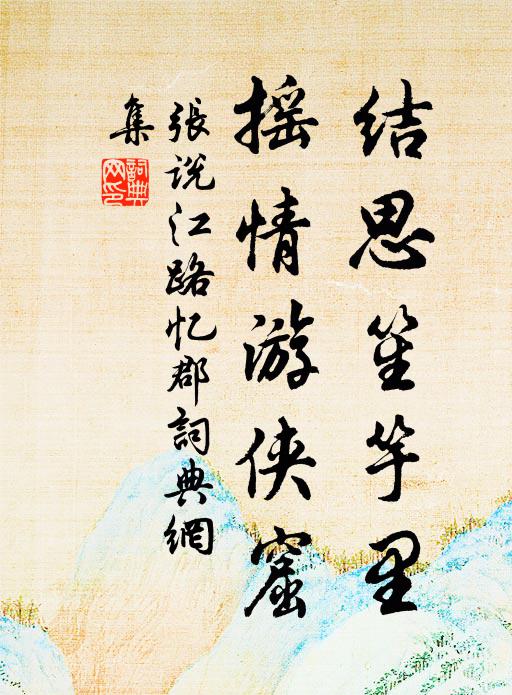 结思笙竽里
摇情游侠窟
张说江路忆郡詞典網
集
詞典網印